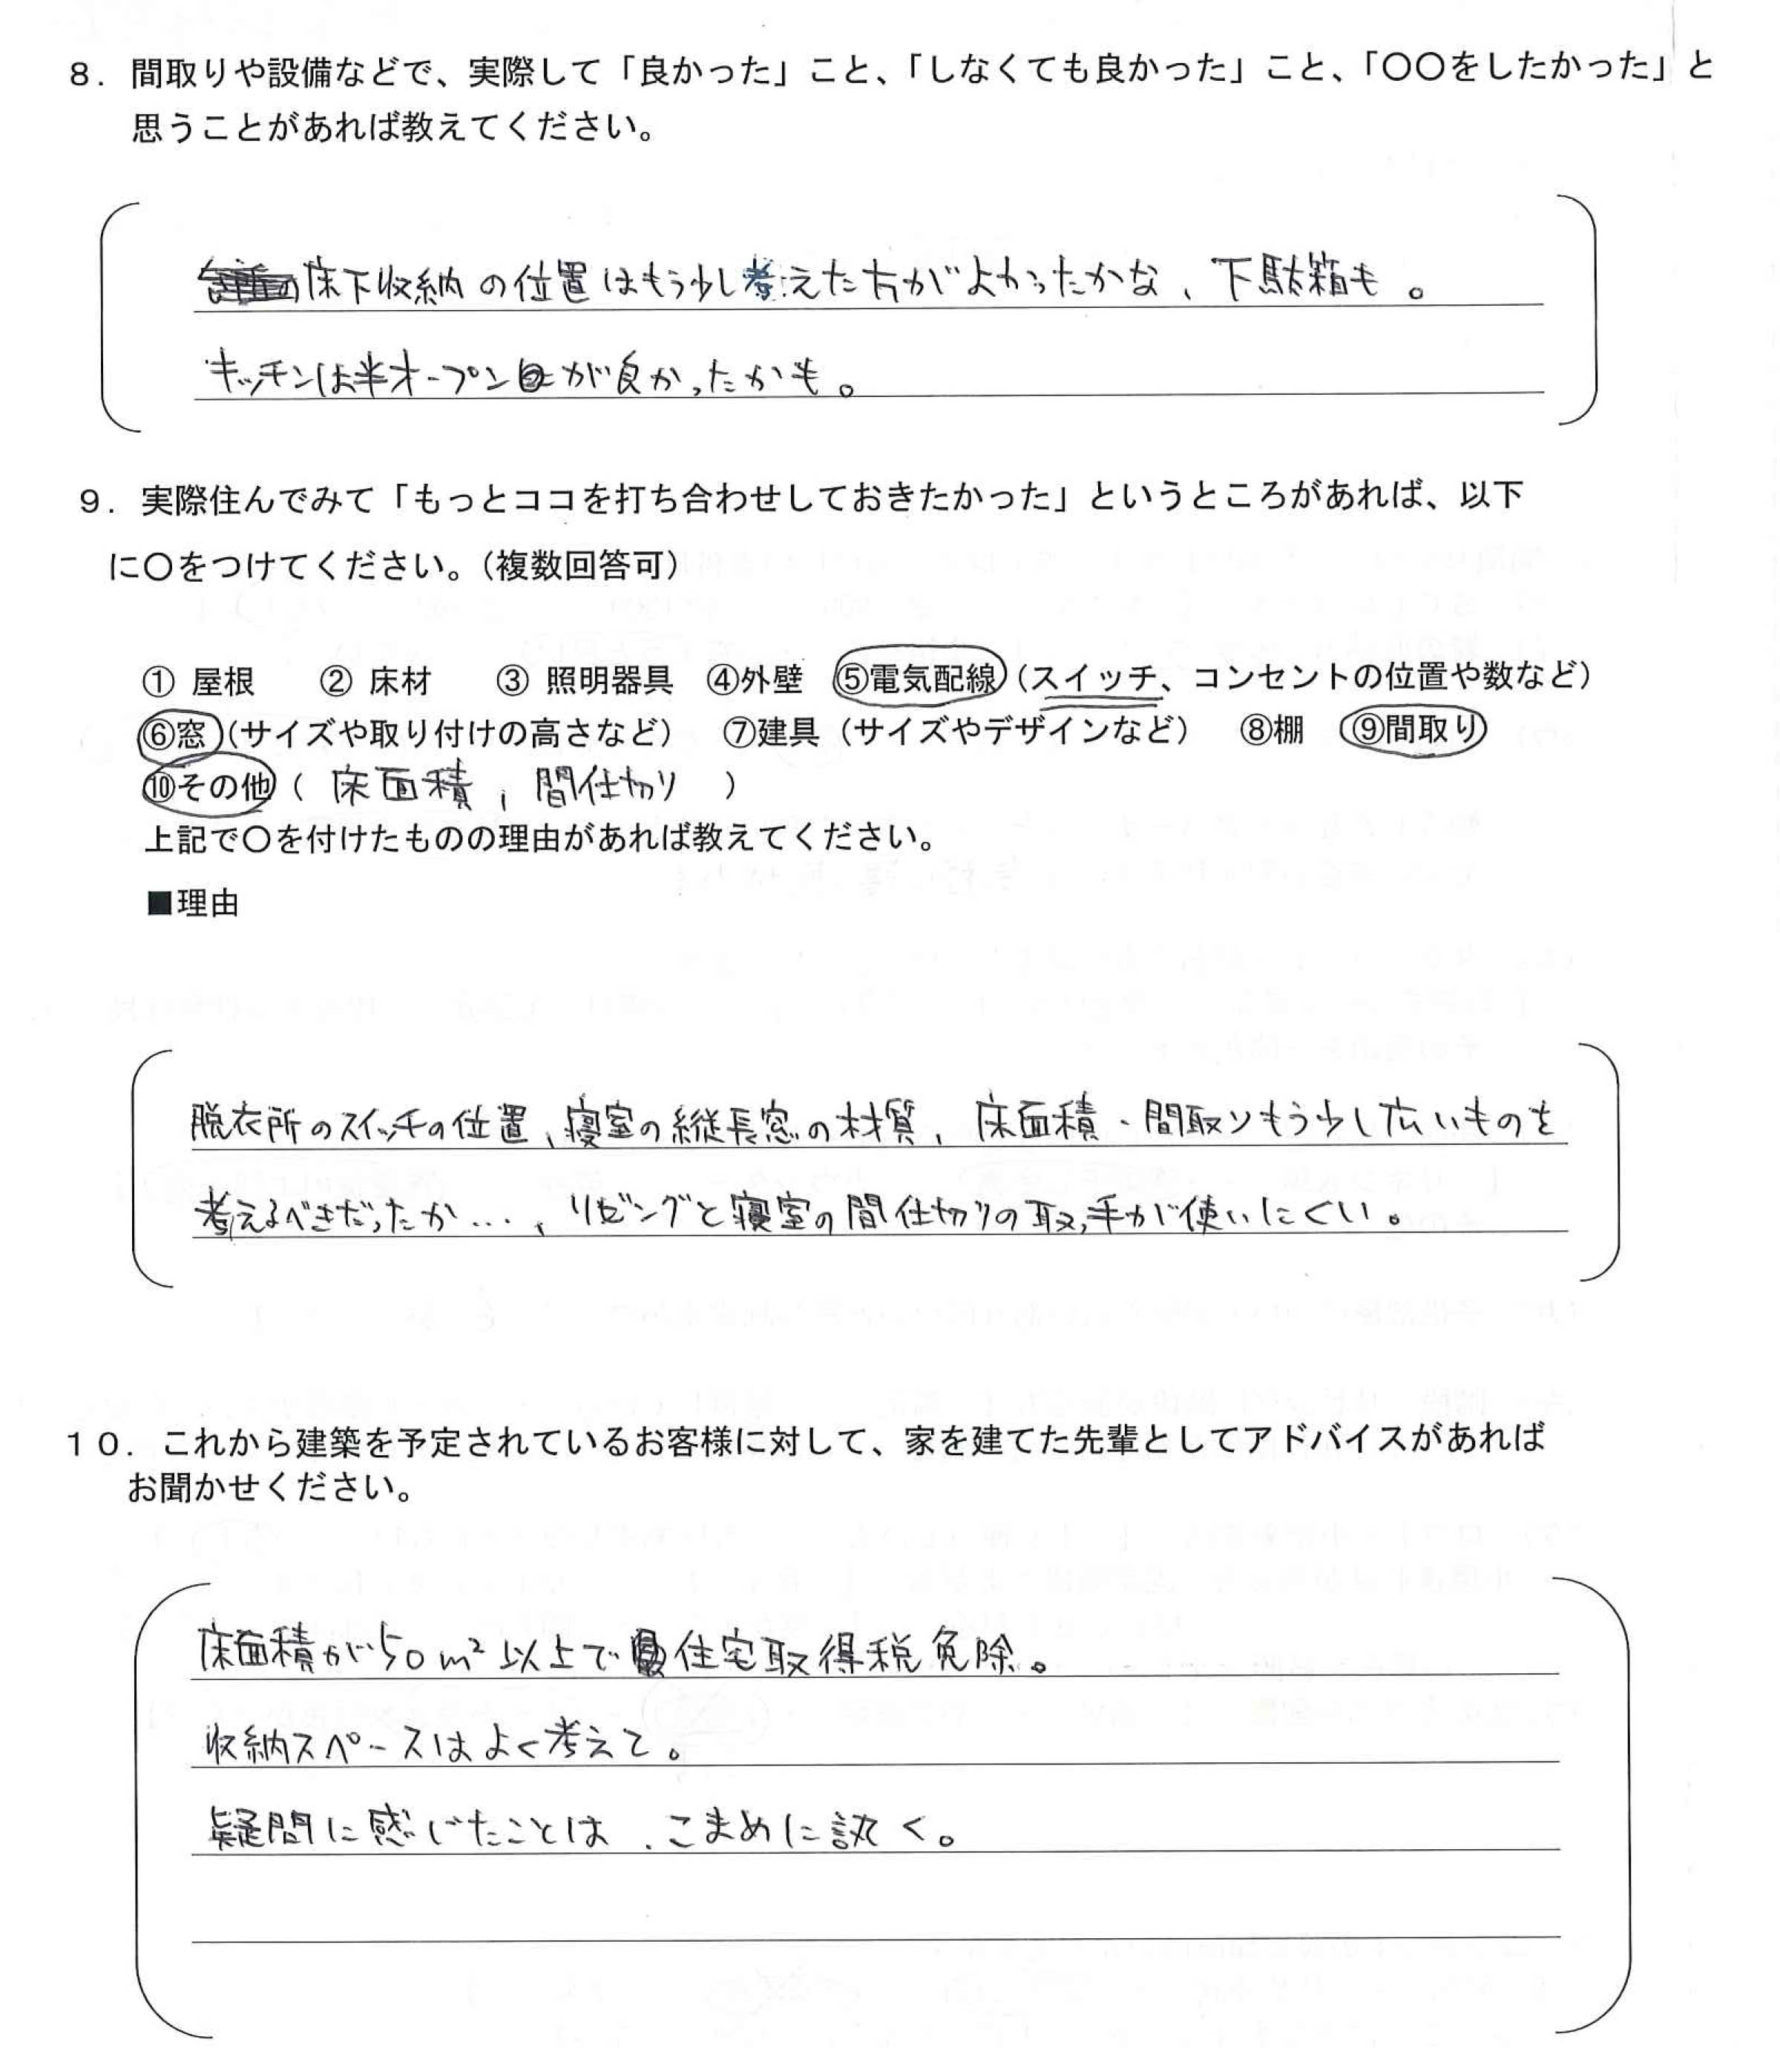 ８．間取りや設備などで、実際して「良かった」こと、「しなくても良かった」こと、「〇〇をしたかった」と
思うことがあれば教えてください。
床下収納の位置はもう少し考えた方がよかったかな、下駄箱も。
キッチンは半オープンが良かったかも。
９．実際住んでみて「もっとココを打ち合わせしておきたかった」というところがあれば、以下
に〇をつけてください。（複数回答可）
① 屋根　② 床材　③ 照明器具　④外壁　⑤電気配線（スイッチ、コンセントの位置や数など）
⑥窓（サイズや取り付けの高さなど）　⑦建具（サイズやデザインなど）　⑧棚　⑨間取り
⑩その他（ 床面積、間仕切り ）
上記で〇を付けたものの理由があれば教えてください。
■理由
脱衣所のスイッチの位置、寝室の縦長窓の材質、床面積・間取りもう少し広いものを
考えるべきだったか…、リビングと寝室の間仕切りの取っ手が使いにくい。
１０．これから建築を予定されているお客様に対して、家を建てた先輩としてアドバイスがあれば
お聞かせください。
床面積が50m²以上で住宅取得税免除。
収納スペースはよく考えて。
疑問に感じたことは、こまめに訊く。